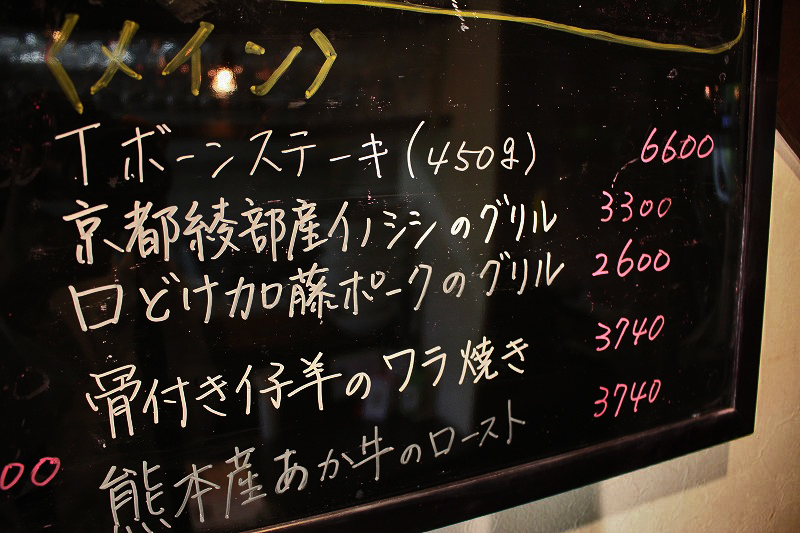 〈メイン〉
Tボーンステーキ(450g) 6600
京都綾部産イノシシのグリル 3300
口どけ加藤ポークのグリル 2600
骨付き仔羊のワラ焼き 3740
熊本産あか牛のロースト 3740
00